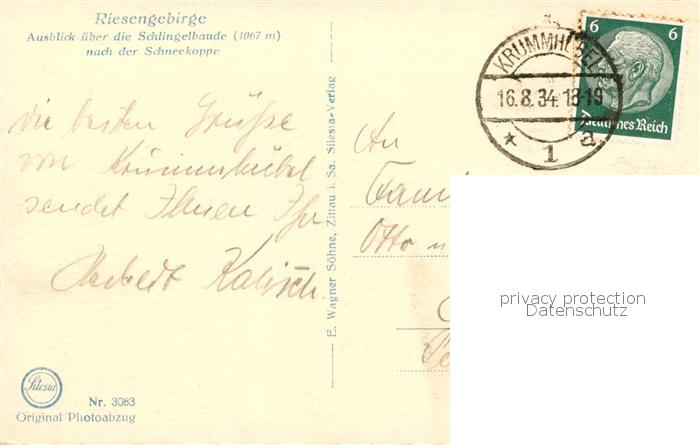 Riesengebirge
Ausblick über die Schlingelbaude (1067 m)
nach der Schneekoppe
die besten Grüße
von Krummhübel
sendet Ihnen Ihr
Herbert Kalisch.
E. Wagner Söhne, Zittau i. Sa. Silesia-Verlag
KRUMMHÜBEL
16.8.34.18-19
* 1 a
6 6
Deutsches Reich
An
Fami
Otto u
privacy protection
Datenschutz
Silesia
Nr. 3083
Original Photoabzug